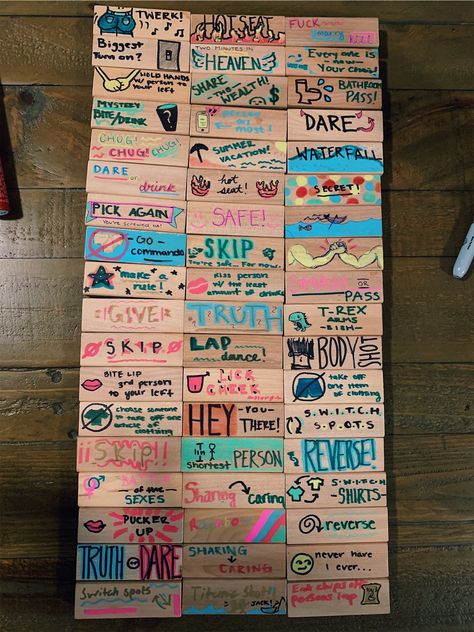 TWERK!
HOT SEAT
FUCK
marry
kill
Biggest
Turn on?
TWO MINUTES IN
HEAVEN
Everyone is
now
Your Chad!
HOLD HANDS
w/ person to
your left
SHARE
THE
WEALTH!
$
BATHROOM
PASS!
MYSTERY
BITE/DRINK
?
person
most!
DARE
CHUG!
CHUG!
CHUG!
SUMMER
VACATION!
WATERFALL
DARE
or
drink
hot
seat!
SECRET!
PICK AGAIN
You're screwed. Ha!
SAFE!
-GO-
COMMANDO
SKIP
You're safe... For now.
make a
rule!
Kiss person
w/ the least
amount of drink
OR
PASS
GIVE
TRUTH
T-REX
ARMS
-BISH-
SKIP
LAP
dance!
BODY
SHOT
BITE LIP
3rd person
to your left
LICK
CHEEK
take off
one item
of clothing
choose someone
to take off one
article of
clothing
HEY -YOU-
THERE!
S.W.I.T.C.H
S.P.O.T.S
¡¡Skip!!
shortest
PERSON
REVERSE!
BATTLE
of the
SEXES
Sharing
Caring
S.W.I.T.C.H
-SHIRTS-
PUCKER
UP
reverse
TRUTH OR DARE
SHARING
CARING
never have
I ever...
Switch spots
Titanic Shot!
JACK!
Eat chips off
persons lap